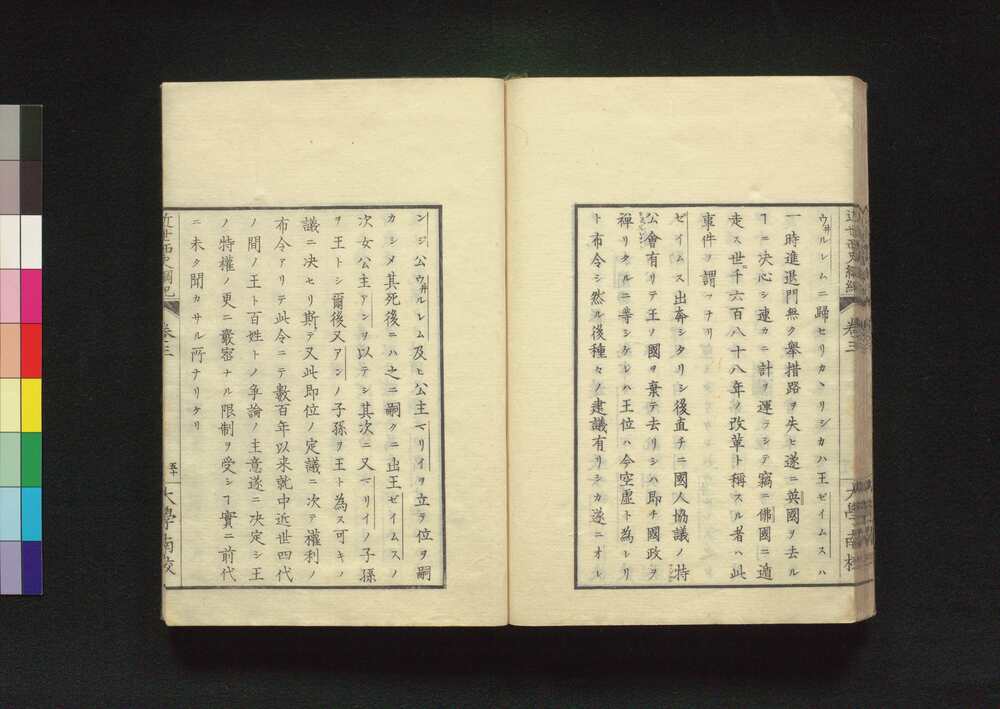 近世西史綱紀 卷三 大學南校
ウ井ルレムニ歸セリカヽリシカハ王ゼイムスハ
一時進退門無ク舉措路ヲ失ヒ遂ニ英國ヲ去ル
ヿニ决心シ速カニ計ヲ運テシテ竊ニ佛國ニ遁
走ス世ニ千六百八十八年ノ改革ト稱スル者ハ此
事件ヲ謂フナリ
ゼイムス出奔シタリシ後直チニ國人協議ノ特
公會有リテ王ノ國ヲ棄テ去リシハ即チ國政ヲ
禅リタルニ等シケレハ王位ハ今空虚ト為レリ
ト布令シ然ル後種々ノ建議有リシカ遂ニオレ
ンジ公ウ井ルレム及ヒ公主マリイヲ立テ位ヲ嗣
カシメ其死後ニハ之ニ嗣クニ出王ゼイムスノ
次女公主アンヲ以テシ其次ニ又マリイノ子孫
ヲ王トシ爾後又アンノ子孫ヲ王ト為ス可キノ
議ニ决セリ斯テ又此即位ノ定議ニ次テ權利ノ
布令アリテ此令ニテ數百年以來就中近世四代
ノ間ノ王ト百姓トノ争論ノ主意遂ニ决定シ王
ノ特權ノ更ニ嚴密ナル限制ヲ受シヿ實ニ前代
ニ未タ聞カサル所ナリケリ
近世西史綱紀 卷三 五十 大學南校